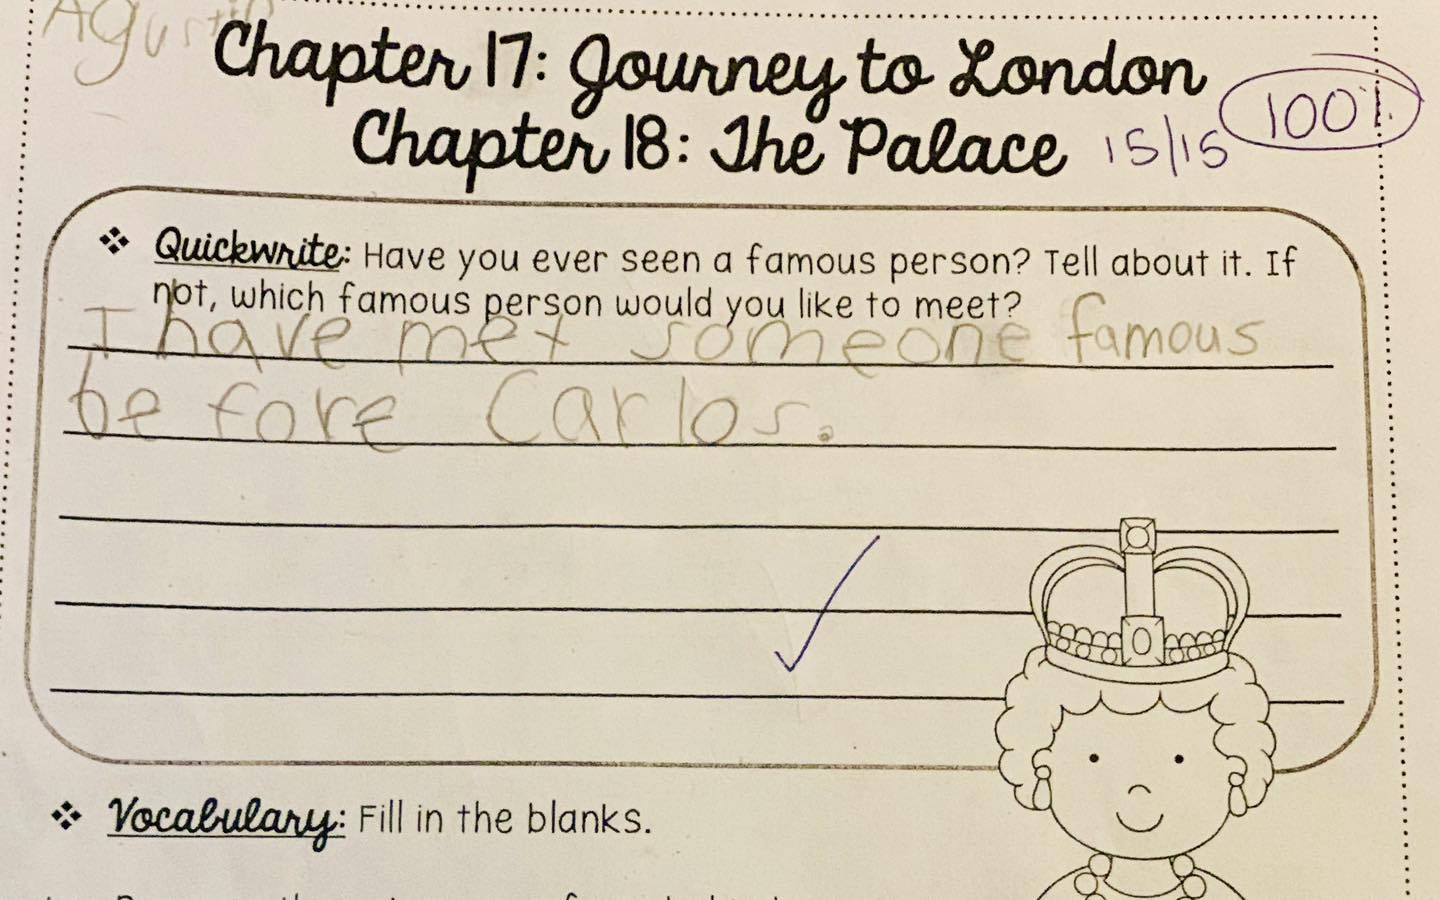 Agustin
Chapter 17: Journey to London
Chapter 18: The Palace 15/15 100%
❖ Quickwrite: Have you ever seen a famous person? Tell about it. If
not, which famous person would you like to meet?
I have met someone famous
before Carlos.
❖ Vocabulary: Fill in the blanks.